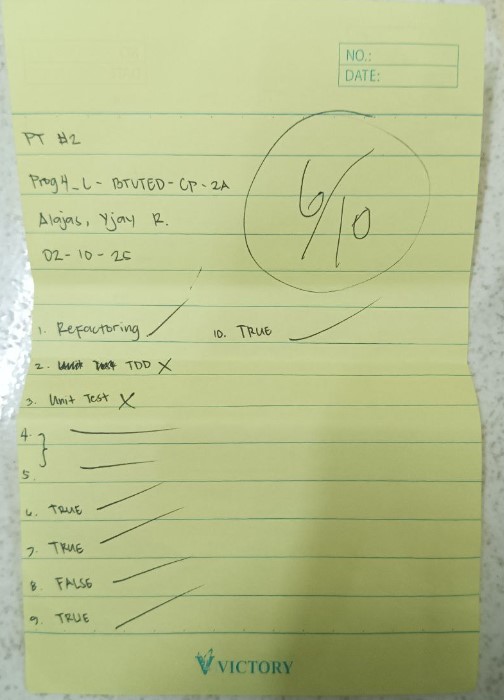 NO.:
DATE:
PT #2
6/10
Prog4_L - BTVTED - CP - 2A
Alajas, Yjay R.
02 - 10 - 25
1. Refactoring
10. TRUE
2. TDD X
3. Unit Test X
4.
5.
6. TRUE
7. TRUE
8. FALSE
9. TRUE
VICTORY